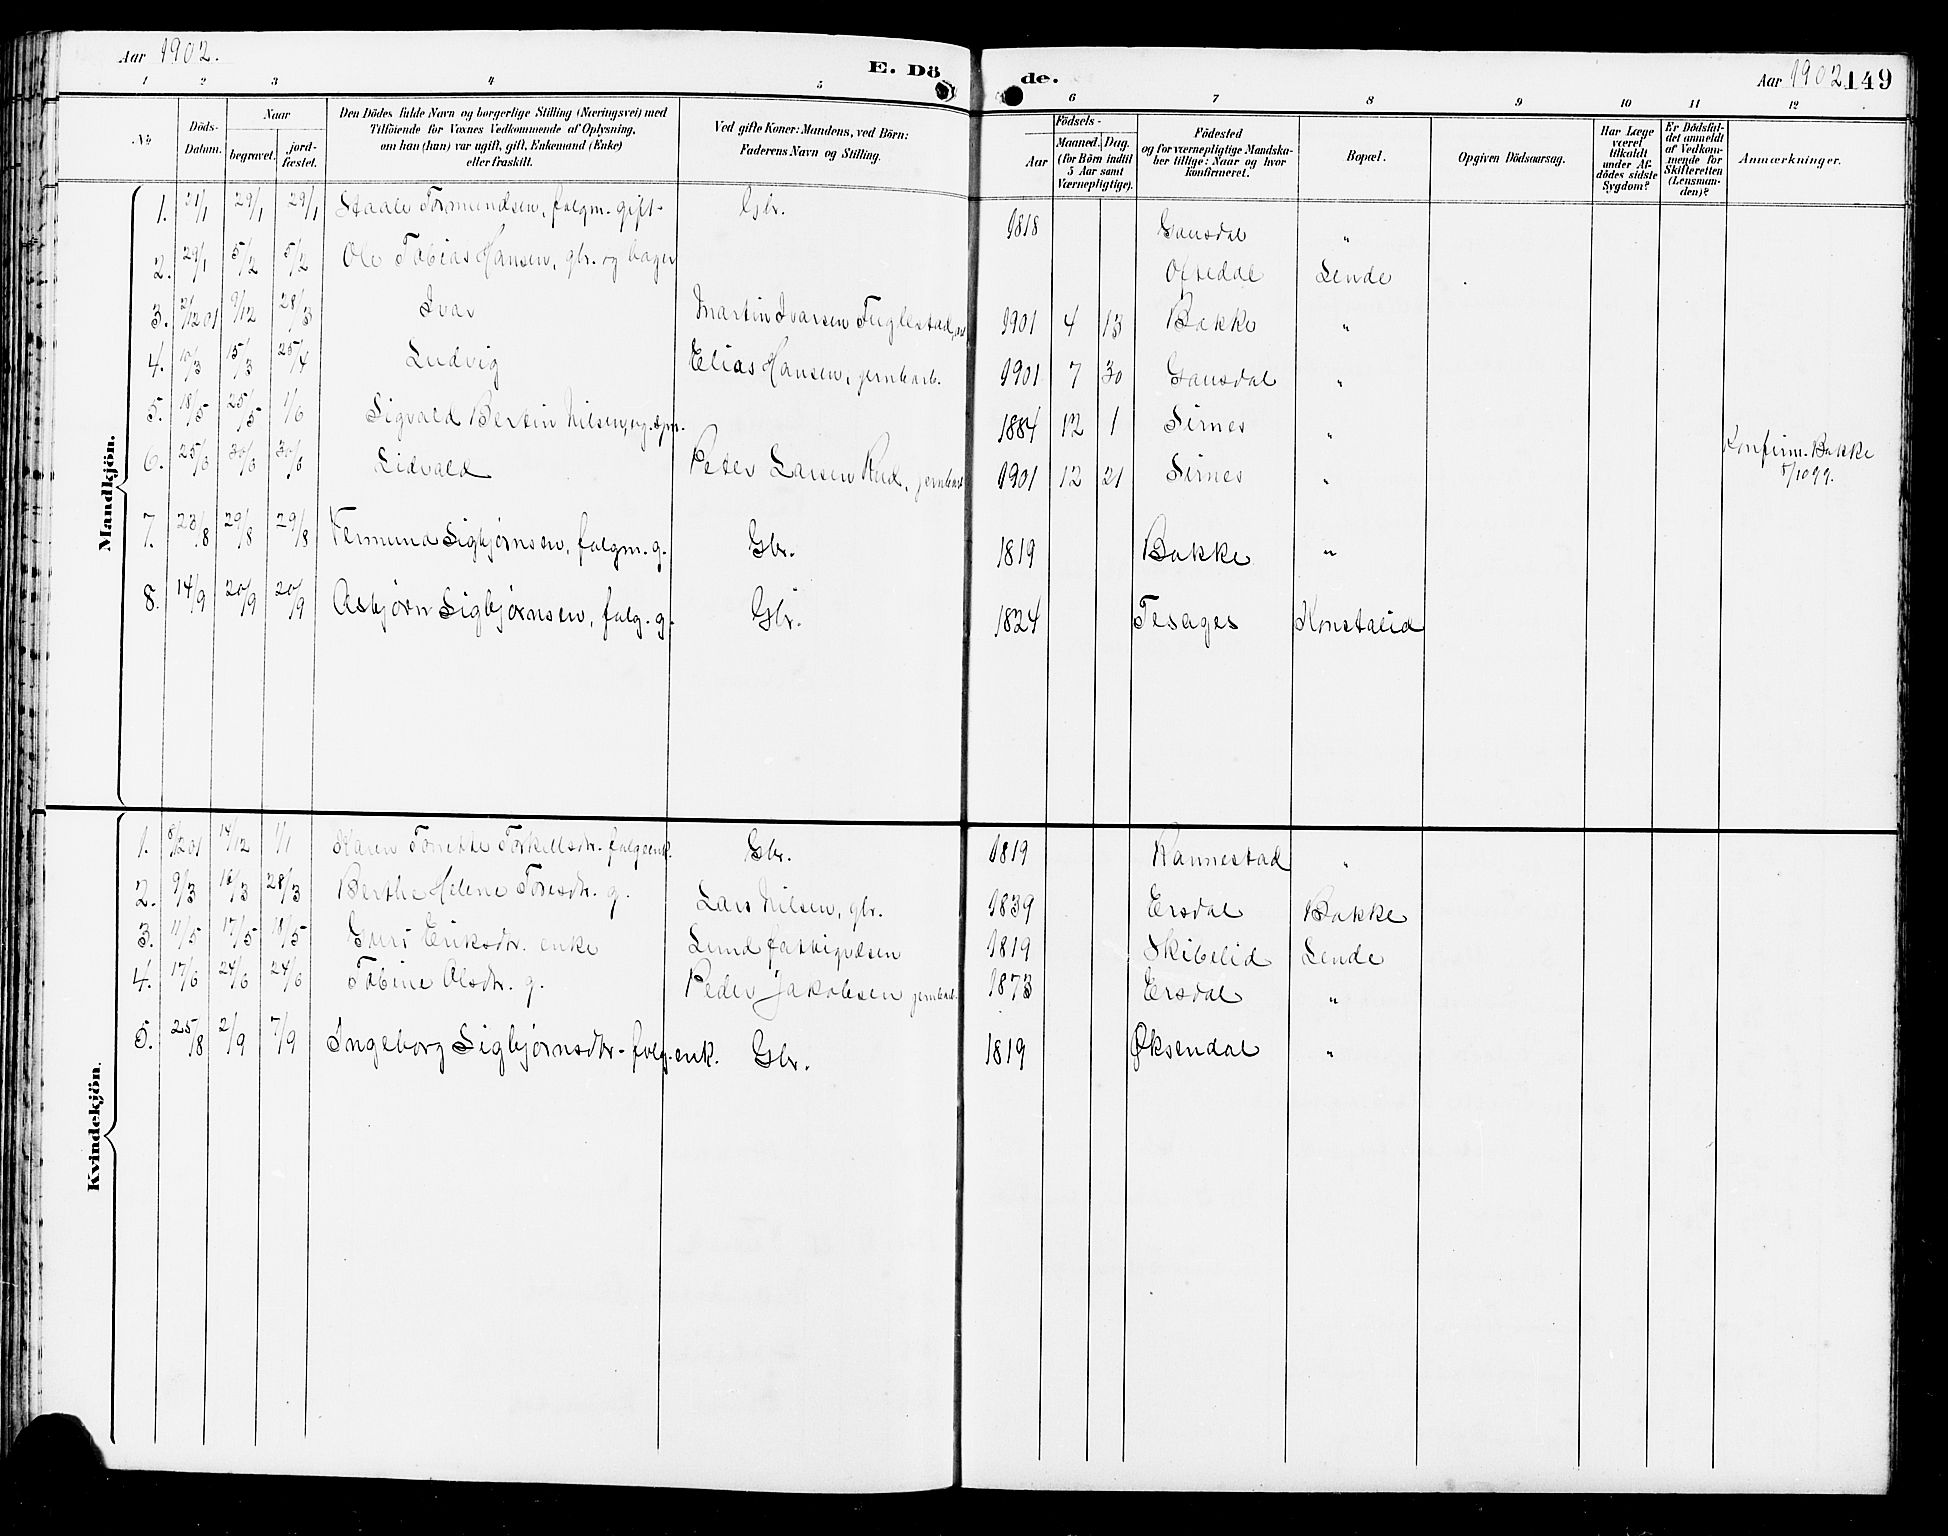 Aar 1902.
E. Dö
de.
Aar 1902
149
1 2 3 4 5 6 7 8 9 10 11 12
Nr.
Döds-
Datum.
Naar
begravet.
jord-
fæstet.
Den Dödes fulde Navn og borgerlige Stilling (Næringsvei) med
Tilföiende for Voxnes Vedkommende af Oplysning,
om han (hun) var ugift, gift, Enkemand (Enke)
eller fraskilt.
Ved gifte Koner: Mandens, ved Börn:
Faderens Navn og Stilling.
Födsels-
Aar
Maaned. Dag.
(for Börn indtil
5 Aar samt
Værnepligtige).
Födested
og for værnepligtige Mandska-
ber tillige: Naar og hvor
konfirmeret.
Bopæl.
Opgiven Dödsaarsag.
Har Læge
været
tilkaldt
under Af-
dödes sidste
Sygdom?
Er Dödsfal-
det anmeldt
af Vedkom-
mende for
Skifteretten
(Lensman-
den)?
Anmærkninger.
Mandkjön.
1. 21/1 29/1 29/1 Staale Tormundsen, folgm. gift- Gbr. 1818 Gausdal "
2. 29/1 5/2 5/2 Ole Tobias Hansen, gbr. og bager Oftedal Lende
3. 2/12 01 9/12 28/3 Ivar Martin Ivarsen Fuglestad, 1901 4 13 Bakke "
4. 10/3 15/3 25/4 Ludvig Elias Hansen, jernbarb. 1901 7 30 Gausdal "
5. 18/5 25/5 1/6 Sigvald Bertin Nilsen, 1884 12 1 Sirnes "
Konfirm. Bakke
8/10 99.
6. 25/6 30/6 30/6 Sidvald Peder Larsen Rud, jernbarb 1901 12 21 Sirnes "
7. 23/8 29/8 29/8 Vermund Sigbjørnsen, folgm. g. Gbr. 1819 Bakke "
8. 14/9 20/9 20/9 Asbjørn Sigbjørnsen, folg. g. Gbr. 1824 Tesages Konstalid
Kvindekjön.
1. 8/12 01 14/12 1/1 Karen Tonette Torkellsdtr. folgeenk. Gbr. 1819 Rannestad "
2. 9/3 16/3 28/3 Berthe Helene Toresdtr. g. Lars Nilsen, gbr. 1839 Ersdal Bakke
3. 11/5 17/5 18/5 Guri Eriksdtr. enke Lund fattigvæsen 1819 Skibelid Lende
4. 17/6 24/6 24/6 Tobine Olsdtr. g. Peder Jakobsen jernbarb. 1873 Ersdal "
5. 25/8 2/9 7/9 Ingeborg Sigbjørnsdtr- folg.enk. Gbr. 1819 Øksendal "